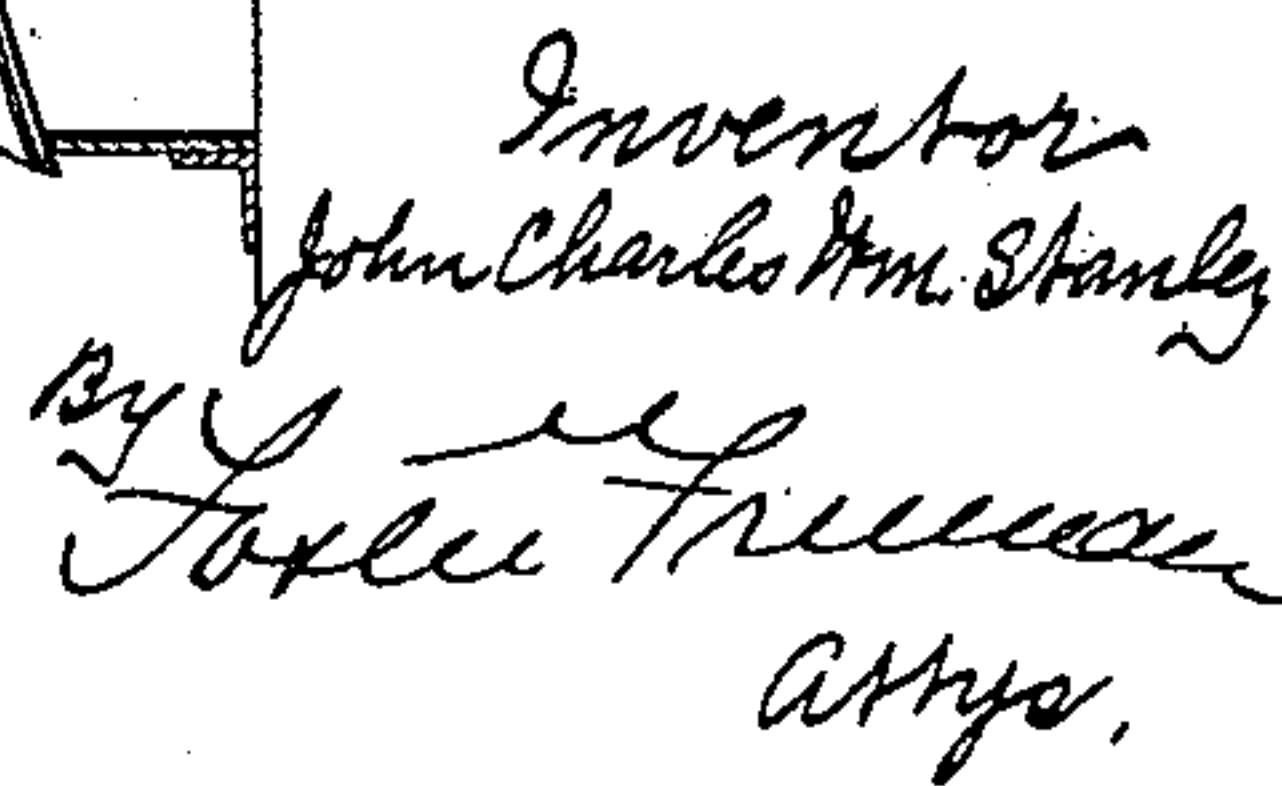 Inventor
John Charles Wm. Stanley
By
Freeman
Attys.